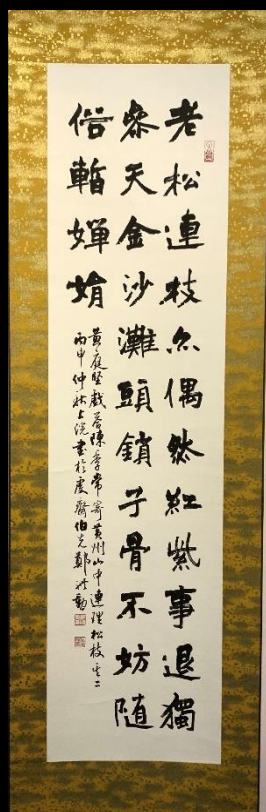 老松連枝亦偶然紅紫事退獨
參天金沙灘頭鎖子骨不妨隨
俗暫嬋娟
黃庭堅戲答陳季常寄黃州山中連理松枝其二
丙申仲秋上浣書於虔齋伯克鄭